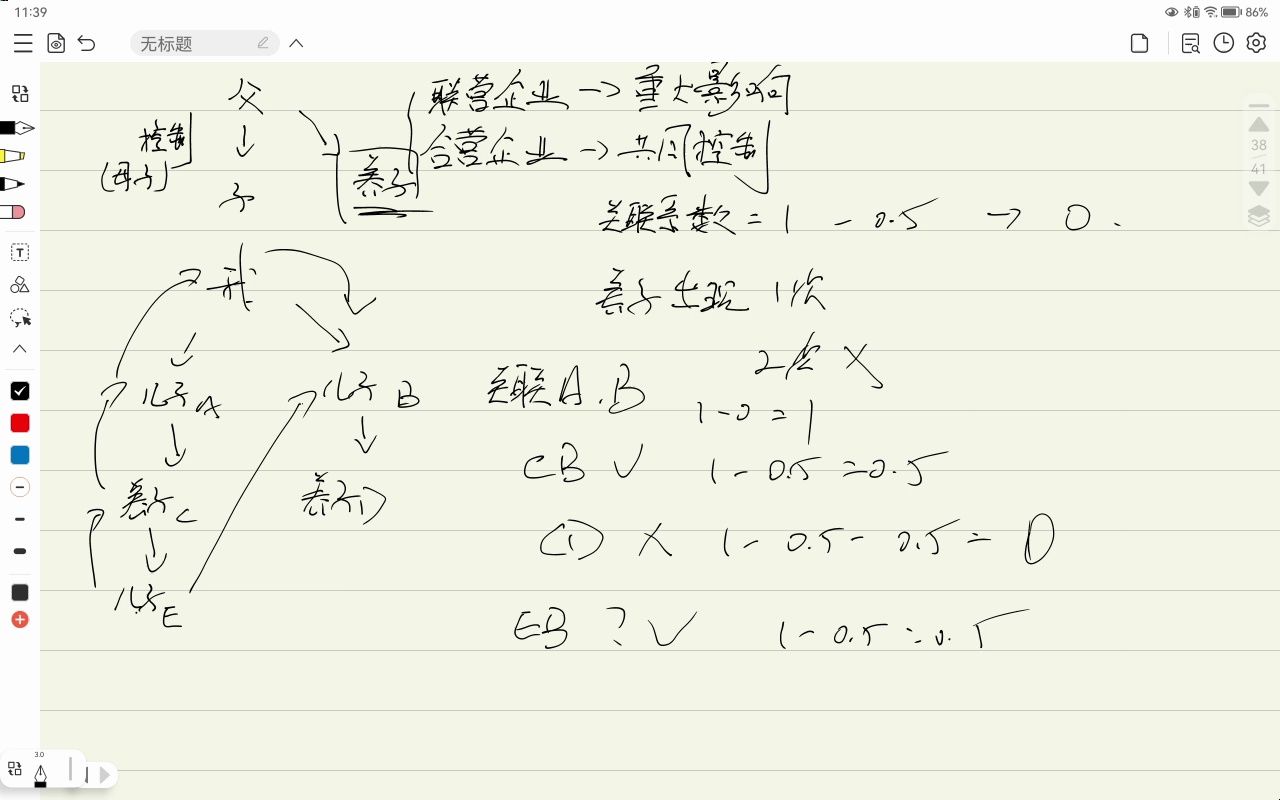 11:39
86%
无标题
父
联营企业 → 重大影响
控制
(母子)
合营企业 → 共同控制
子
养子
关联系数 = 1 - 0.5 → 0.
我
养子出现 1次
2次 X
儿子A
儿子 B
关联A.B
1-0=1
CB √ 1-0.5=0.5
养子C
养子D
CD X 1-0.5-0.5=0
儿子E
EB ? √ 1-0.5=0.5
38
41
T
3.0